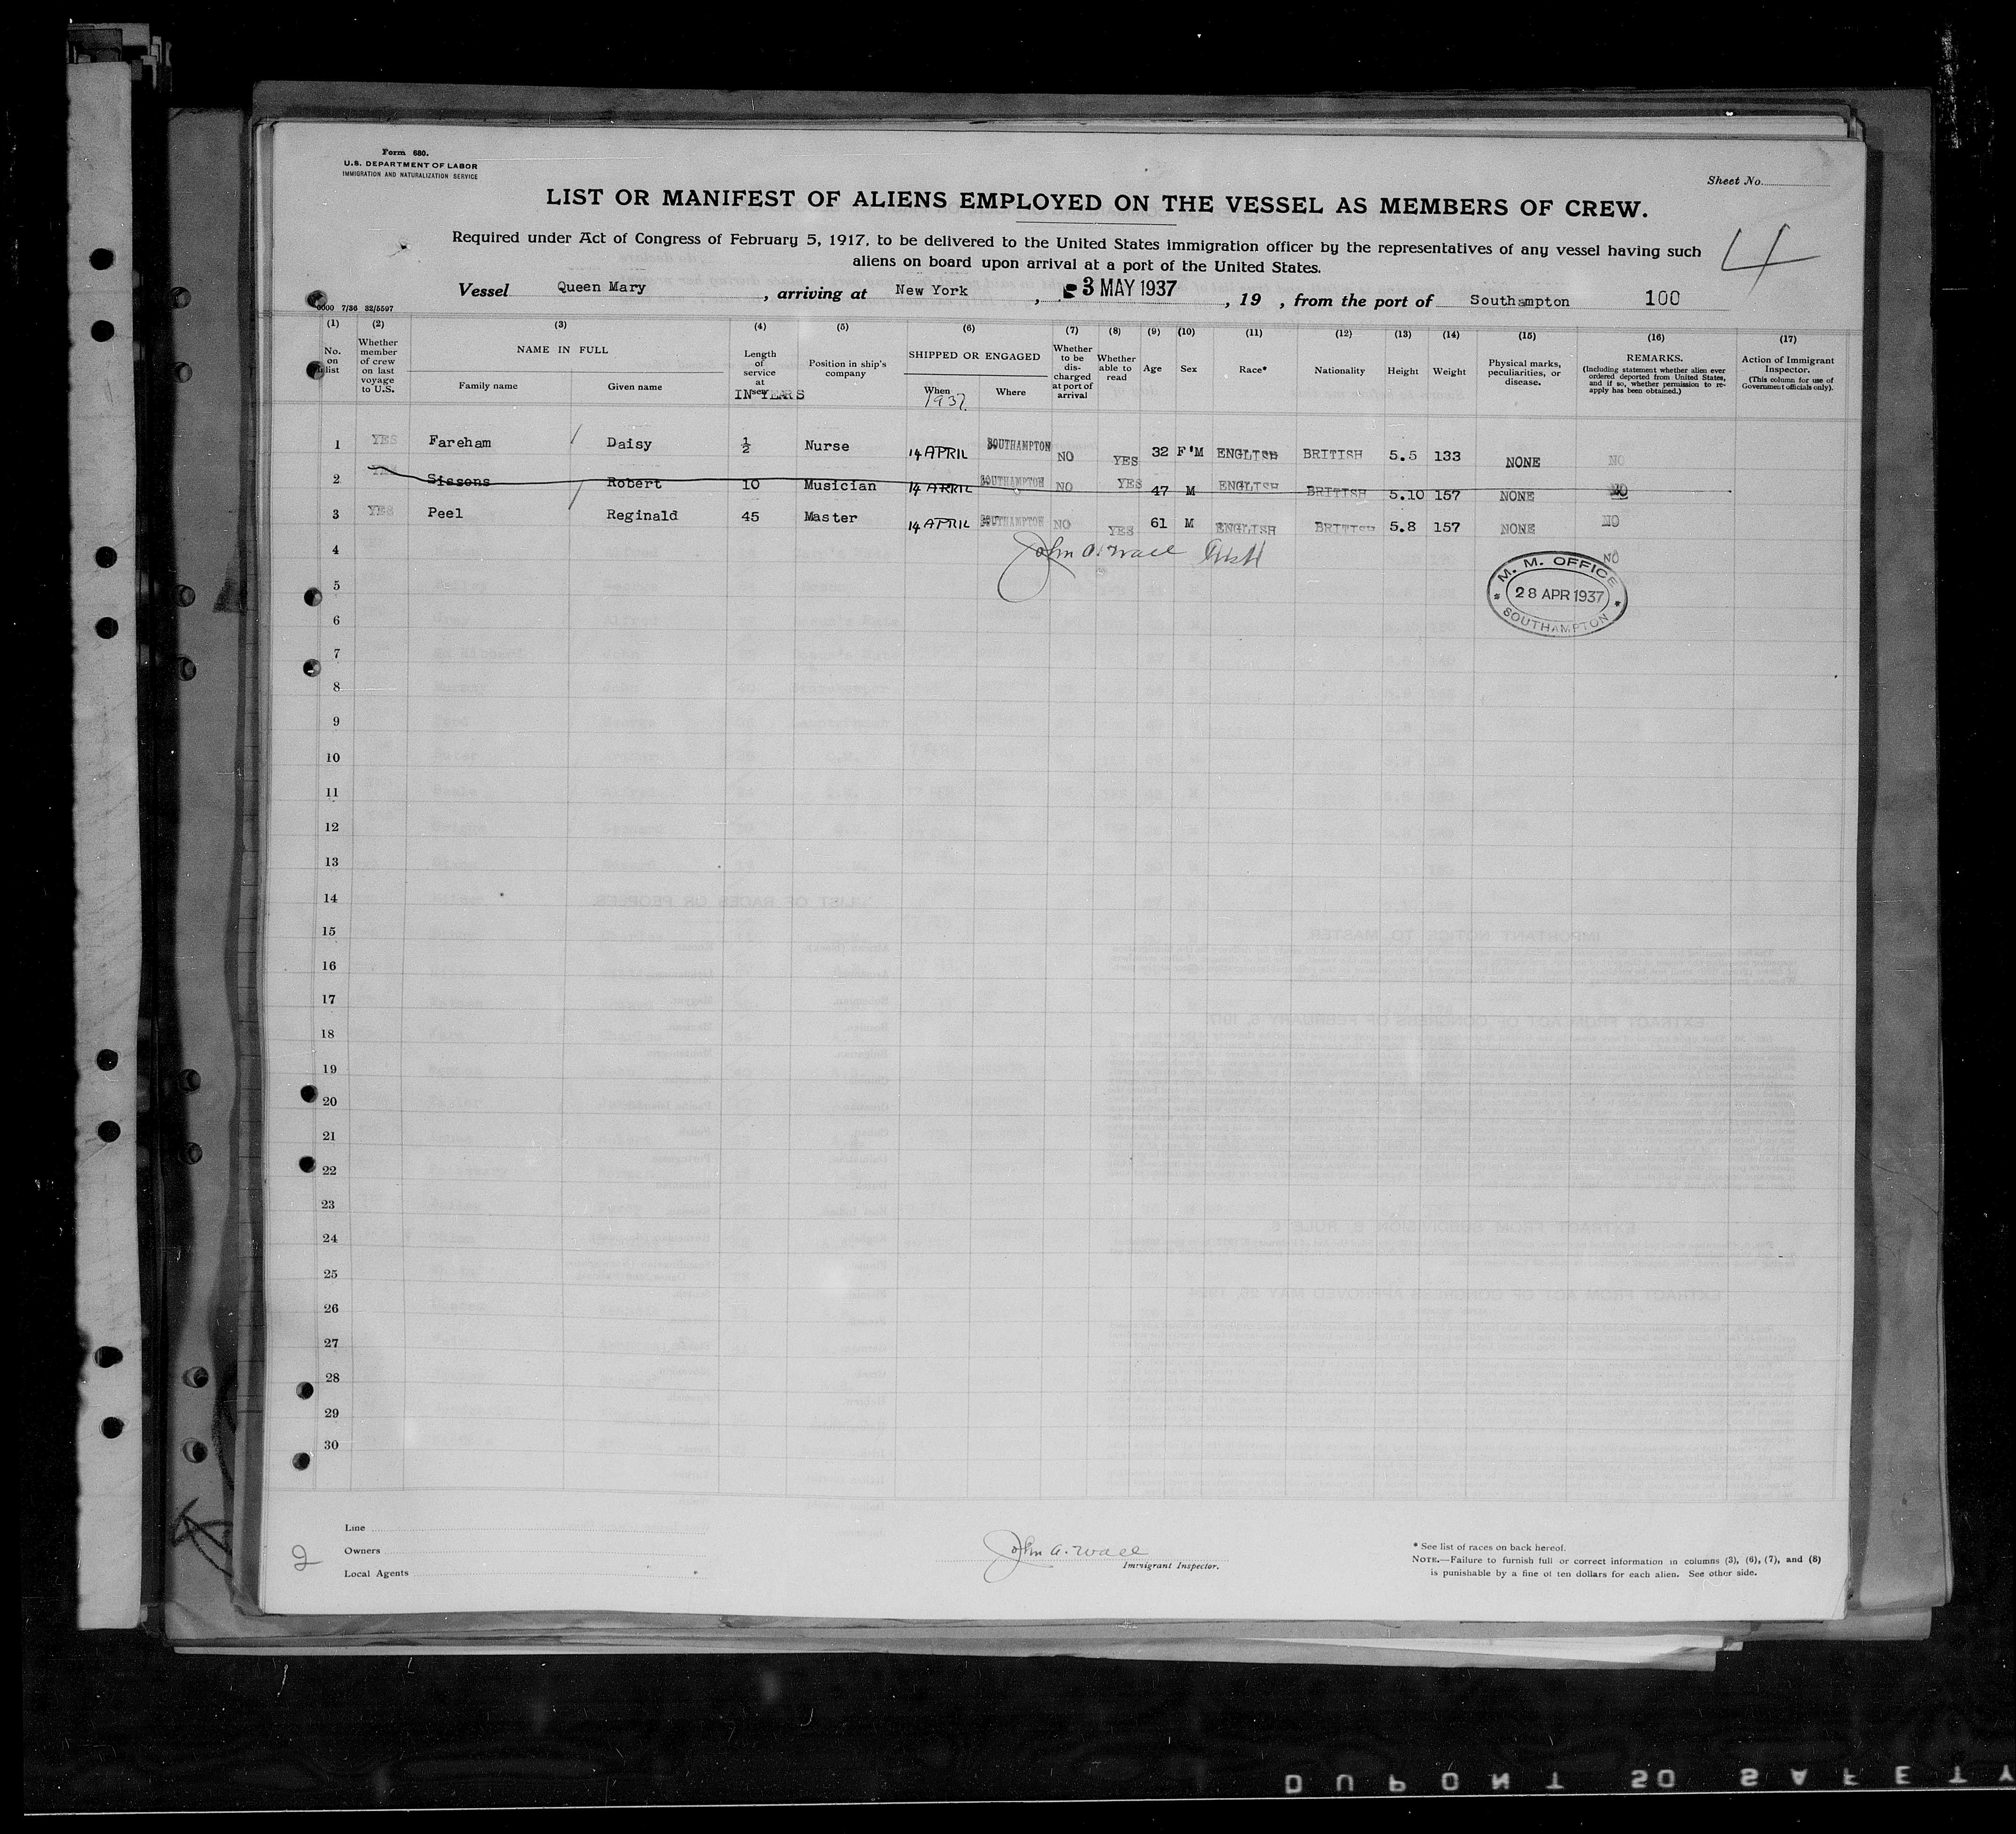 Form 680.
U.S. DEPARTMENT OF LABOR
IMMIGRATION AND NATURALIZATION SERVICE
Sheet No.
LIST OR MANIFEST OF ALIENS EMPLOYED ON THE VESSEL AS MEMBERS OF CREW.
4
Required under Act of Congress of February 5, 1917, to be delivered to the United States immigration officer by the representatives of any vessel having such
aliens on board upon arrival at a port of the United States.
Vessel Queen Mary, arriving at New York, 3 MAY 1937, 19 , from the port of Southampton 100
7/36 32/5597
(1) (2) (3) (4) (5) (6) (7) (8) (9) (10) (11) (12) (13) (14) (15) (16) (17)
No. on list
Whether member of crew on last voyage to U.S.
NAME IN FULL
Family name Given name
Length of service at sea
IN YEARS
Position in ship's company
SHIPPED OR ENGAGED
When Where
1937
Whether to be discharged at port of arrival
Whether able to read
Age
Sex
Race*
Nationality
Height
Weight
Physical marks, peculiarities, or disease.
REMARKS.
(Including statement whether alien ever ordered deported from United States, and if so, whether permission to reapply has been obtained.)
Action of Immigrant Inspector.
(This column for use of Government officials only).
1 YES Fareham Daisy ½ Nurse 14 APRIL SOUTHAMPTON NO YES 32 F'M ENGLISH BRITISH 5.5 133 NONE NO
2 YES Sissons Robert 10 Musician 14 APRIL SOUTHAMPTON NO YES 47 M ENGLISH BRITISH 5.10 157 NONE NO
3 YES Peel Reginald 45 Master 14 APRIL SOUTHAMPTON NO YES 61 M ENGLISH BRITISH 5.8 157 NONE NO
4 NO
John A. Wall
M. M. OFFICE
28 APR 1937
SOUTHAMPTON
5
6
7
8
9
10
11
12
13
14
15
16
17
18
19
20
21
22
23
24
25
26
27
28
29
30
Line
Owners
Local Agents
2
John A. Wall
Immigrant Inspector.
* See list of races on back hereof.
NOTE.—Failure to furnish full or correct information in columns (3), (6), (7), and (8)
is punishable by a fine of ten dollars for each alien. See other side.
DUPONT SAFETY